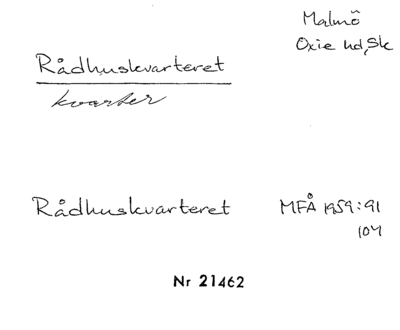 Malmö
Oxie hd, Sk
Rådhuskvarteret
kvarter
Rådhuskvarteret MFÅ 1959:91
104
Nr 21462